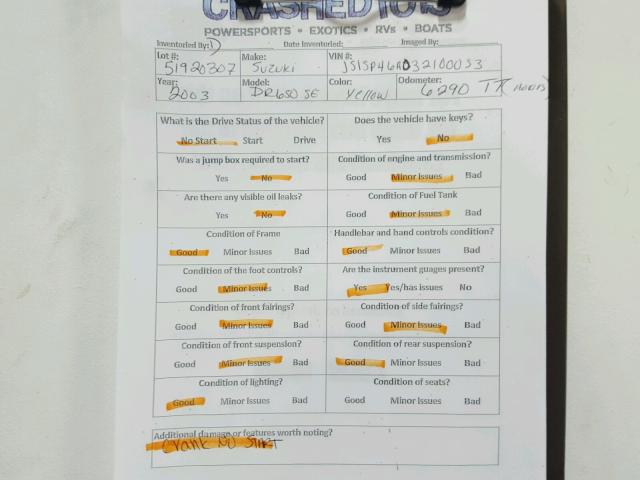 CRASHEDTOYS
POWERSPORTS • EXOTICS • RVs • BOATS
Inventoried By: Date Inventoried: Imaged By:
Lot #: Make: VIN #:
51920307 Suzuki JS1SP46A032100053
Year: Model: Color: Odometer:
2003 DR650 SE Yellow 6290
What is the Drive Status of the vehicle? Does the vehicle have keys?
No Start Start Drive Yes No
Was a jump box required to start? Condition of engine and transmission?
Yes No Good Minor Issues Bad
Are there any visible oil leaks? Condition of Fuel Tank
Yes No Good Minor Issues Bad
Condition of Frame Handlebar and hand controls condition?
Good Minor Issues Bad Good Minor Issues Bad
Condition of the foot controls? Are the instrument guages present?
Good Minor Issues Bad Yes Yes/has issues No
Condition of front fairings? Condition of side fairings?
Good Minor Issues Bad Good Minor Issues Bad
Condition of front suspension? Condition of rear suspension?
Good Minor Issues Bad Good Minor Issues Bad
Condition of lighting? Condition of seats?
Good Minor Issues Bad Good Minor Issues Bad
Additional damage or features worth noting?
Crank No Start